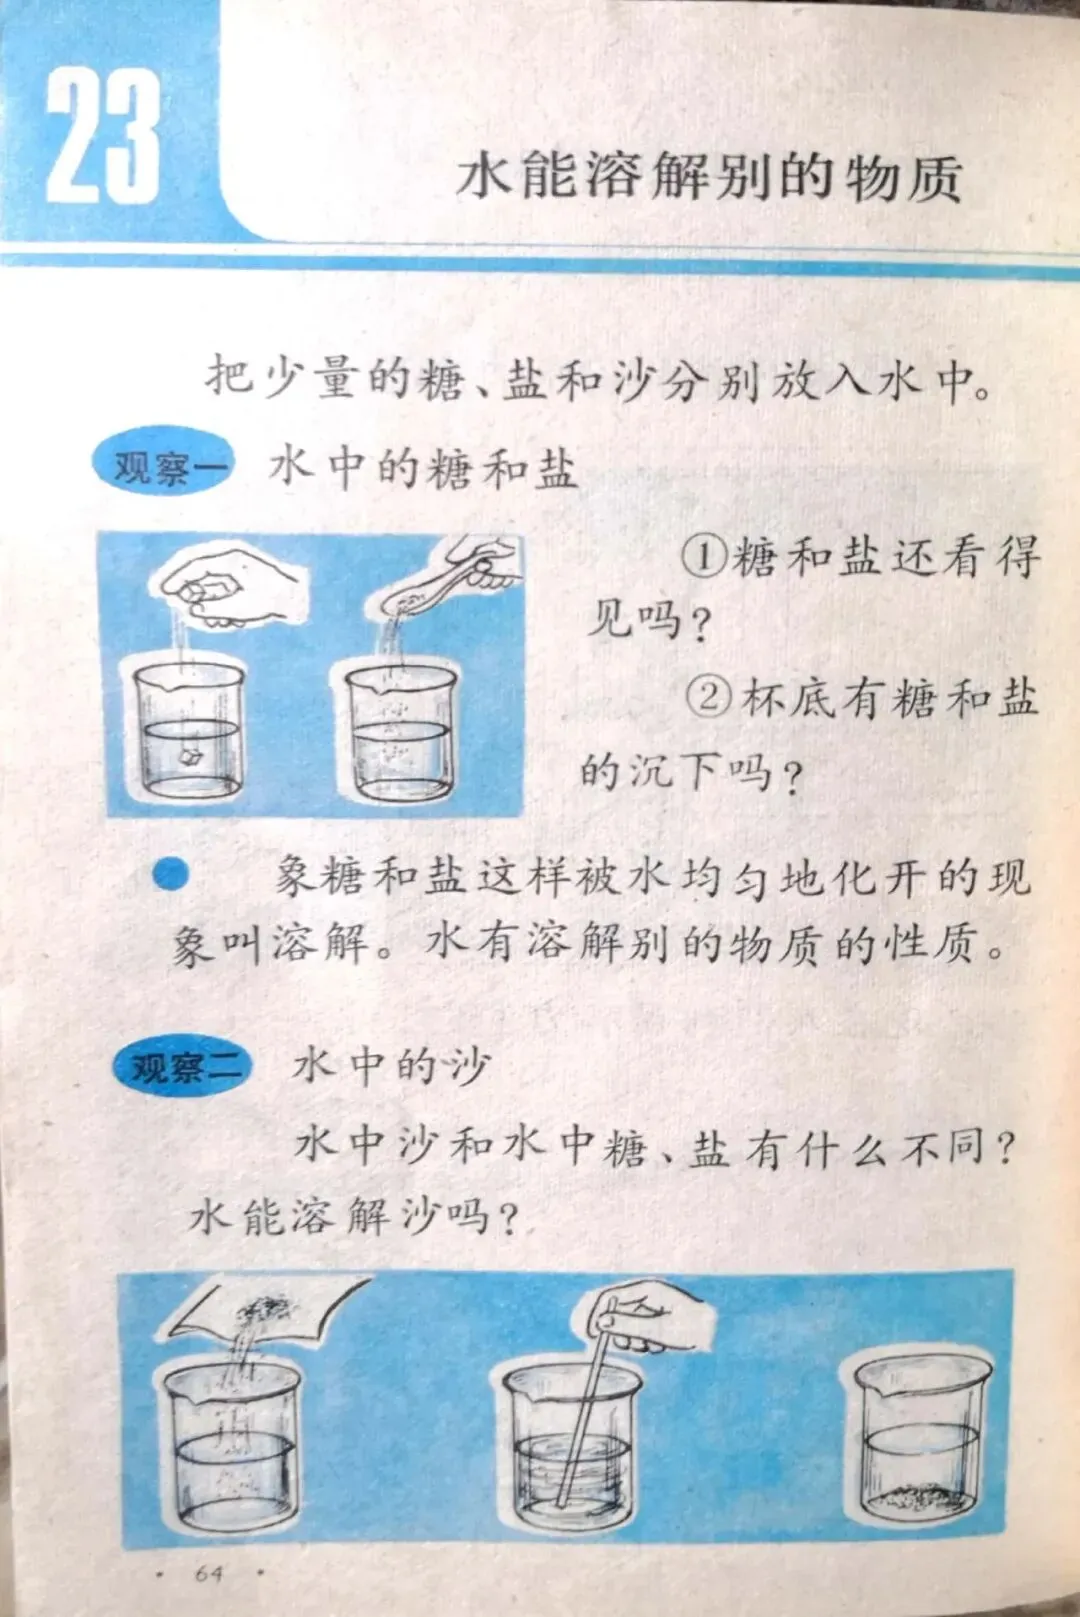 23
水能溶解别的物质
把少量的糖、盐和沙分别放入水中。
观察一 水中的糖和盐
①糖和盐还看得
见吗?
②杯底有糖和盐
的沉下吗?
象糖和盐这样被水均匀地化开的现
象叫溶解。水有溶解别的物质的性质。
观察二 水中的沙
水中沙和水中糖、盐有什么不同?
水能溶解沙吗?
· 64 ·